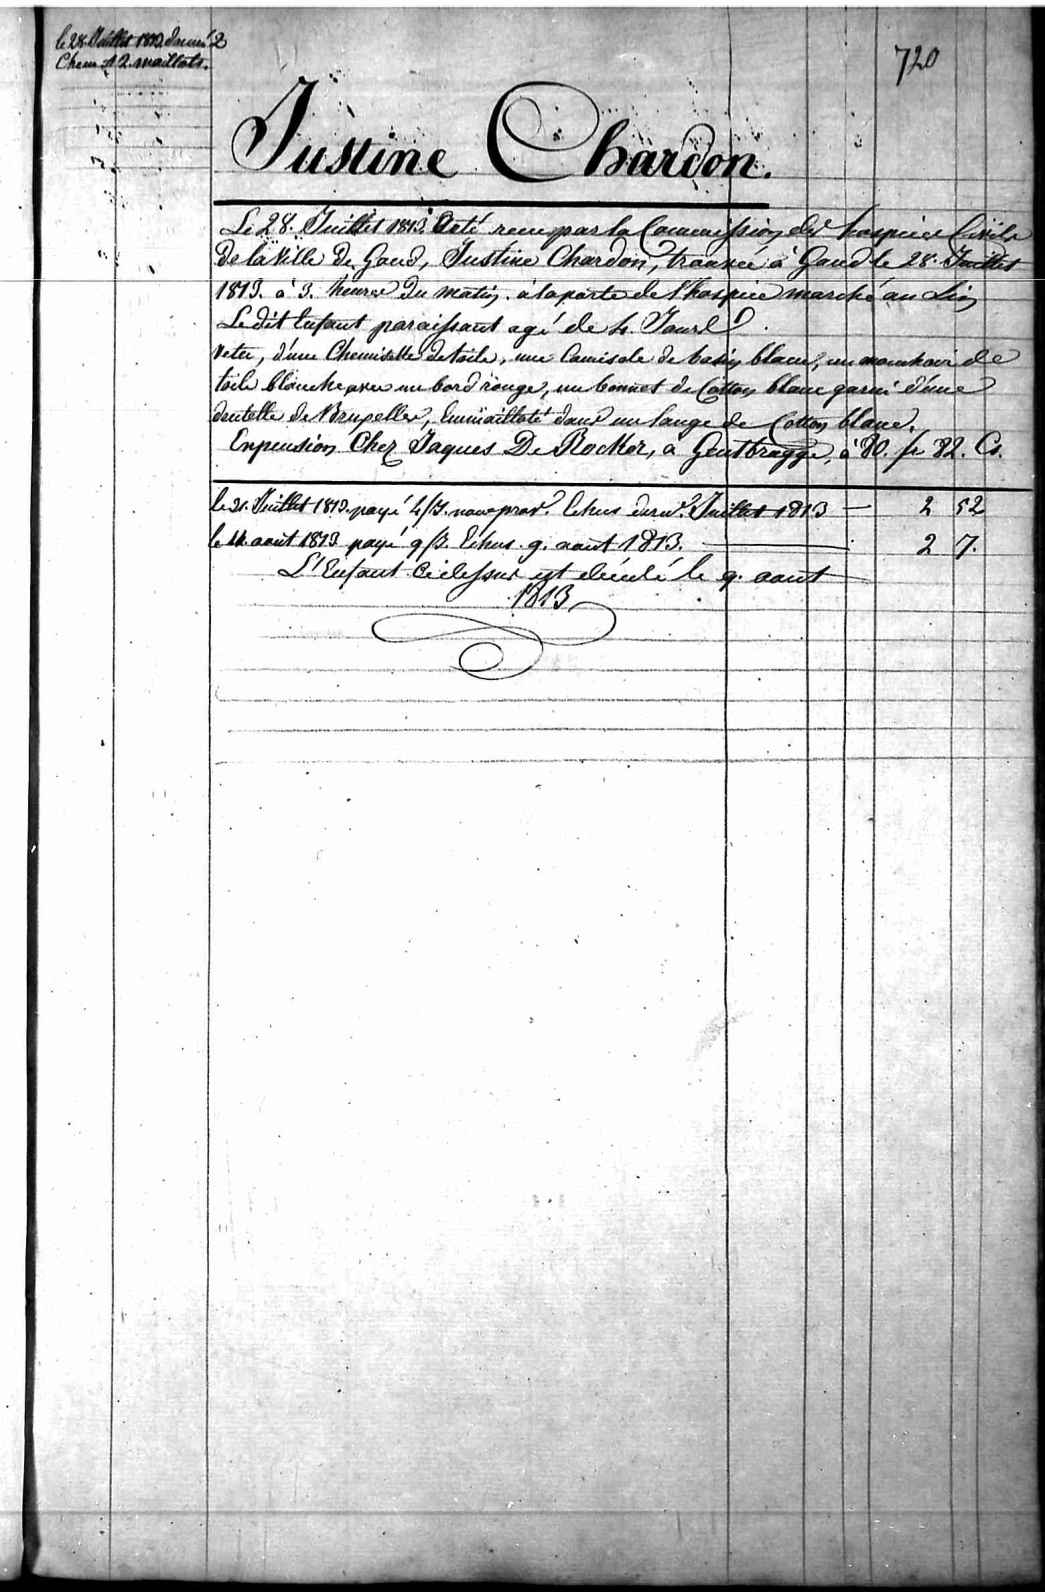 le 28. Juillet 1813. donné 2
Chem. et 2. maillots.
720
Justine Chardon.
Le 28. Juillet 1813. a été recu par la Commission des hospices Civils
de la Ville de Gand, Justine Chardon, trouvée à Gand le 28. Juillet
1813. à 3. heures du matin. à la porte de l'hospice marché au Lin
Le dit Enfant paraissant agé de 4. Jours
Vetu, d'une Chemisette de toile, une Camisole de basin blanc, un mouchoir de
toile blanche avec un bord rouge, un bonnet de Cotton blanc garni d'une
dentelle de Bruxelles, Emmailloté dans un lange de Cotton blanc.
En pension Chez Jaques De Rocker, a Gentbrugge, à 80. fr 82. Cs.
le 31. Juillet 1813. payé 4/J. Echus Juillet 1813 — 2 52
le 11. aout 1813 payé 9/J. Echus 9. aout 1813. 2 7.
L'Enfant Cidessus est décédé le 9. aout
1813